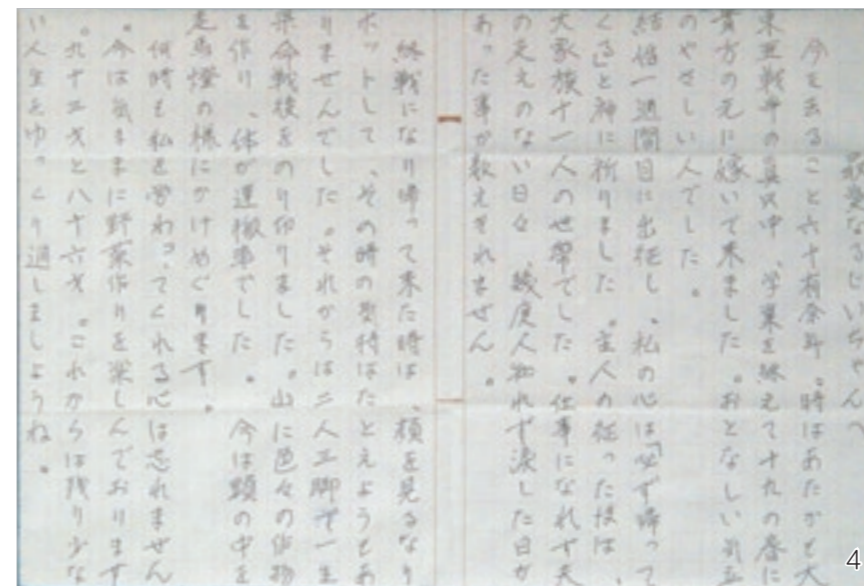 敬愛なるしいちゃんへ
今を去ること六十有余年。時はあたかも大
東亜戦争の真只中、学業を終えて十九の春に
貴方の元に嫁いで来ました。おとなしい気立
のやさしい人でした。
結婚一週間目に出征し、私の心は「必ず帰って
くる」と神に祈りました。主人の征った後は、
大家族十一人の世帯でした。仕事になれず夫
の支えのない日々、幾度人知れず涙した日が
あった事か数えきれません。
終戦になり帰って来た時は、顔を見るなり
ホットして、その時の気持はたとえようもあ
りませんでした。それからは二人三脚で一生
懸命戦後をのり切りました。山に色々の作物
を作り、体が運搬車でした。今は頭の中を
走馬燈の様にかけめぐります。
何時も私を労わってくれる心は忘れません
。今は気ままに野菜作りを楽しんでおります
。九十二才と八十六才。これからは残り少な
い人生をゆっくり過しましようね。
4